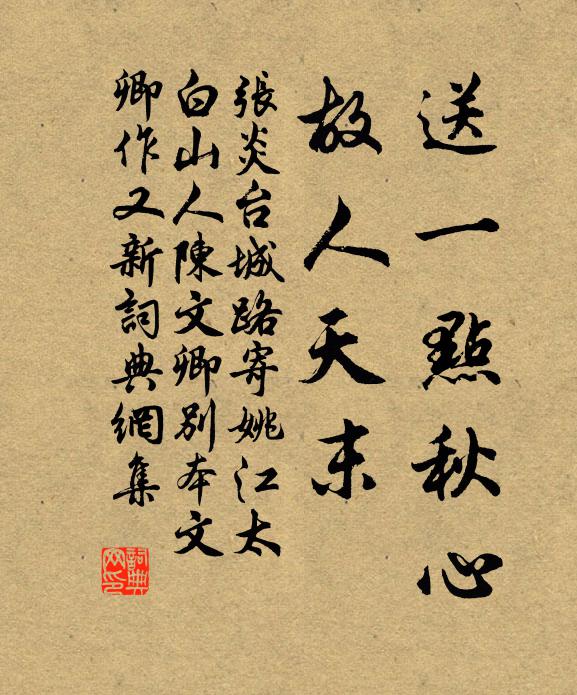 送一點秋心
故人天末
張炎台城路寄姚江太
白山人陳文卿別本文
卿作又新詞典網集
詞典网印